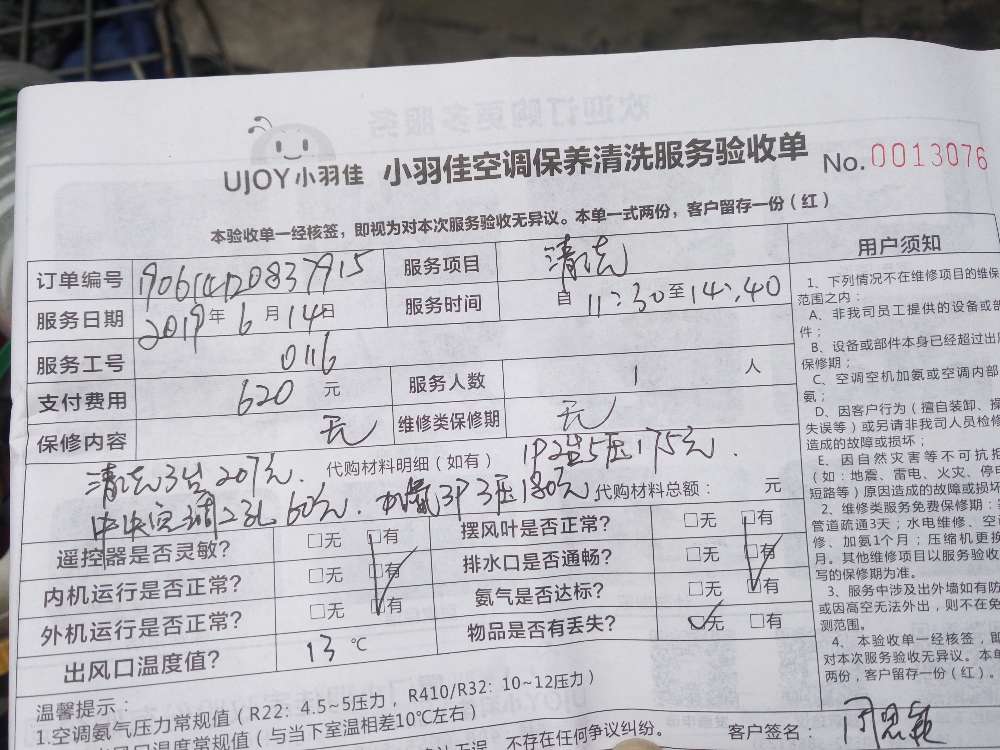 欢迎订购更多服务
UJOY小羽佳 小羽佳空调保养清洗服务验收单 No.0013076
本验收单一经核签，即视为对本次服务验收无异议。本单一式两份，客户留存一份（红）
订单编号 服务项目 清洗
服务日期 2019年6月14日 服务时间 自11:30至14:40
服务工号 0116
支付费用 620元 服务人数 1人
保修内容 无 维修类保修期 无
清洗3台207元. 代购材料明细（如有） 1P2台5压175元.
中央空调2孔60元. 加氨3P3压180元 代购材料总额： 元
遥控器是否灵敏？ □无 □有 摆风叶是否正常？ □无 □有
内机运行是否正常？ □无 □有 排水口是否通畅？ □无 □有
外机运行是否正常？ □无 □有 氨气是否达标？ □无 □有
出风口温度值？ 13℃ 物品是否有丢失？ □无 □有
温馨提示：
1.空调氨气压力常规值（R22：4.5~5压力，R410/R32：10~12压力）
风口温度常规值（与当下室温相差10℃左右）
不存在任何争议纠纷。 客户签名：
用户须知
1、下列情况不在维修项目的维保
范围之内：
A、非我司员工提供的设备或部
件；
B、设备或部件本身已经超过出厂
保修期；
C、空调空机加氨或空调内部
氨；
D、因客户行为（擅自装卸、操
失误等）或另请非我司人员检修
造成的故障或损坏；
E、因自然灾害等不可抗拒
（如：地震、雷电、火灾、停电
短路等）原因造成的故障或损坏
2、维修类服务免费保修期：
管道疏通3天；水电维修、空
修、加氨1个月；压缩机更换
月。其他维修项目以服务验收
写的保修期为准。
3、服务中涉及出外墙如有防
或因高空无法外出，则不在免
测范围。
4、本验收单一经核签，即
对本次服务验收无异议。本单
两份，客户留存一份（红）。